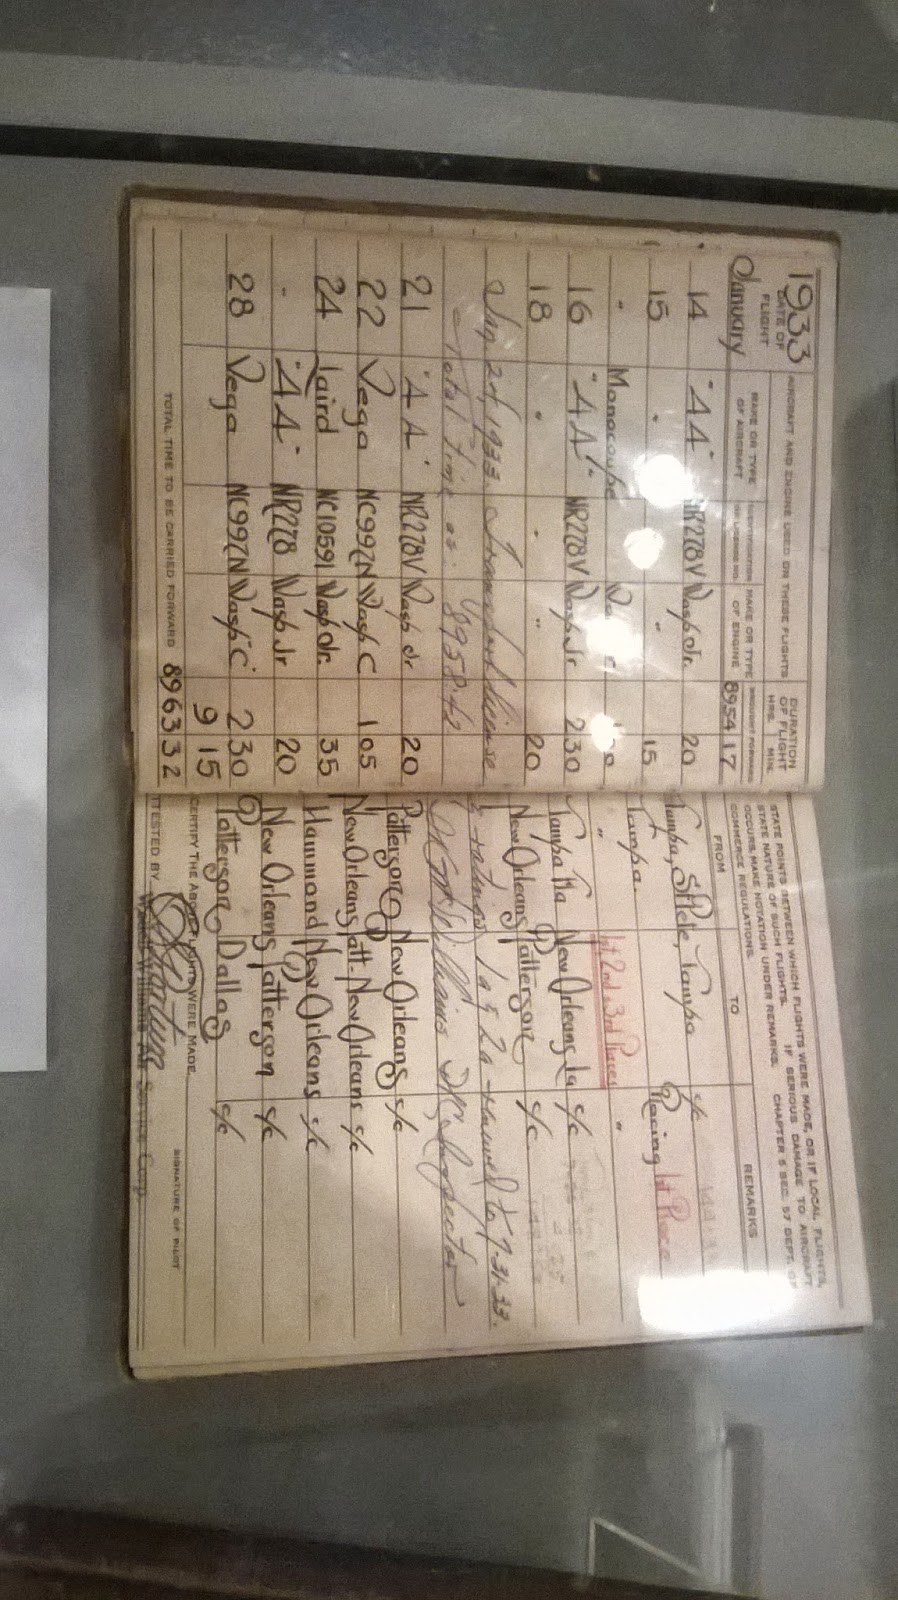 1933
DATE OF FLIGHT
AIRCRAFT AND ENGINE USED OR THESE FLIGHTS
MAKE OR TYPE OF AIRCRAFT
IDENTIFICATION OR LICENSE NO.
MAKE OR TYPE OF ENGINE
DURATION OF FLIGHT
HRS. MIN.
January BROUGHT FORWARD 8954 17
14 "44" NR278V Wasp Jr. 20
15 " " 15
" Monocoupe
16 "44" NR278V Wasp Jr 2 30
18 " " " 20
Jan 21, 1933. license
Total Time as. 8958:42
21 "44" NR278V Wasp Jr 20
22 Vega NC997N Wasp C 1 05
24 Laird NC10591 Wasp Jr. 35
" "44" NR278 Wasp Jr 20
28 Vega NC997N Wasp "C" 2 30
9 15
TOTAL TIME TO BE CARRIED FORWARD 8963 32
STATE POINTS BETWEEN WHICH FLIGHTS WERE MADE, OR IF LOCAL FLIGHTS, STATE NATURE OF SUCH FLIGHTS. IF SERIOUS DAMAGE TO AIRCRAFT OCCURS, MAKE NOTATION UNDER REMARKS. CHAPTER 5 SEC. 57 DEPT. OF COMMERCE REGULATIONS.
FROM TO REMARKS
Tampa, St Pete, Tampa c/c
Tampa. Racing 1st Place
" 1st 2nd 3rd Places "
Tampa Fla New Orleans La c/c
New Orleans Patterson c/c
renewed to 7-31-33.
Williams Inspector
Patterson New Orleans c/c
New Orleans Patt. New Orleans c/c
Hammond New Orleans c/c
New Orleans Patterson c/c
Patterson Dallas c/c
CERTIFY THE ABOVE FLIGHTS WERE MADE.
SIGNATURE OF PILOT
ATTESTED BY
Williams Air Service Corp